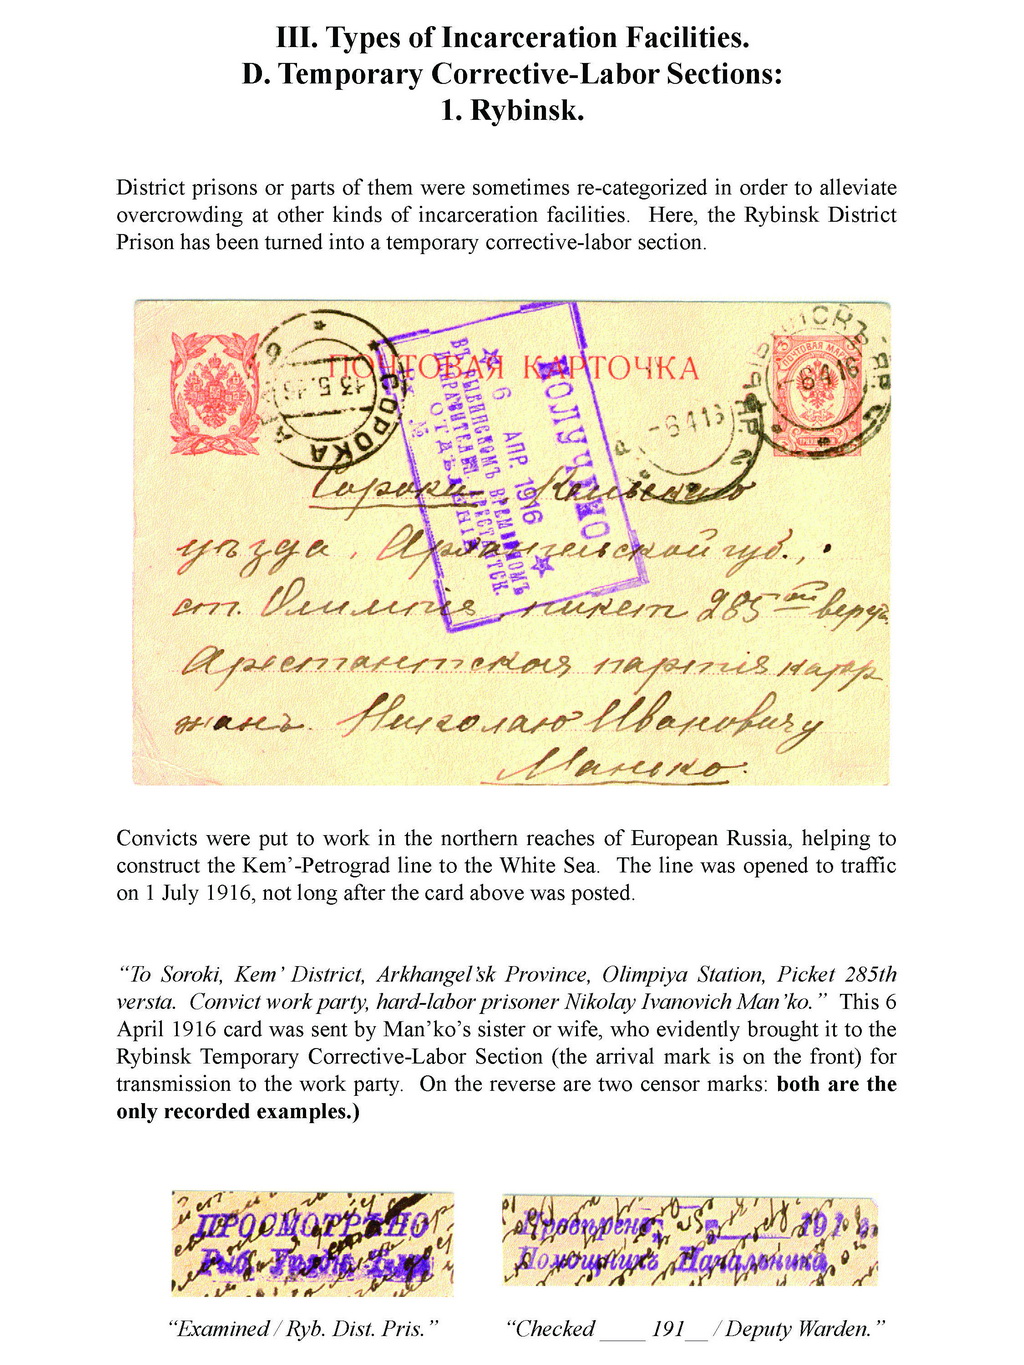 III. Types of Incarceration Facilities.
D. Temporary Corrective-Labor Sections:
1. Rybinsk.
District prisons or parts of them were sometimes re-categorized in order to alleviate
overcrowding at other kinds of incarceration facilities. Here, the Rybinsk District
Prison has been turned into a temporary corrective-labor section.
ПОЧТОВАЯ КАРТОЧКА
ПОЧТОВАЯ МАРКА
СОРОКА
13.5.16
-6 4 16
-6 4 16
ПОЛУЧЕНО
6 АПР. 1916
ВЪ РЫБИНСКОМЪ ВРЕМЕННОМЪ
ИСПРАВИТЕЛЬН. АРЕСТАНТСК.
ОТДѢЛЕНІИ
№
Сороки Кемьскаго
уѣзда, Архангельской губ.,
ст. Олимпія пикет 285ой верст
Арестантская партія каторжанъ
Николаю Ивановичу
Манько.
Convicts were put to work in the northern reaches of European Russia, helping to
construct the Kem’-Petrograd line to the White Sea. The line was opened to traffic
on 1 July 1916, not long after the card above was posted.
“To Soroki, Kem’ District, Arkhangel’sk Province, Olimpiya Station, Picket 285th
versta. Convict work party, hard-labor prisoner Nikolay Ivanovich Man’ko.” This 6
April 1916 card was sent by Man’ko’s sister or wife, who evidently brought it to the
Rybinsk Temporary Corrective-Labor Section (the arrival mark is on the front) for
transmission to the work party. On the reverse are two censor marks: both are the
only recorded examples.)
ПРОСМОТРѢНО
Рыб. Уѣздн. Тюр.
Провѣрено 191 г.
Помощникъ Начальника
“Examined / Ryb. Dist. Pris.”
“Checked ____ 191__ / Deputy Warden.”